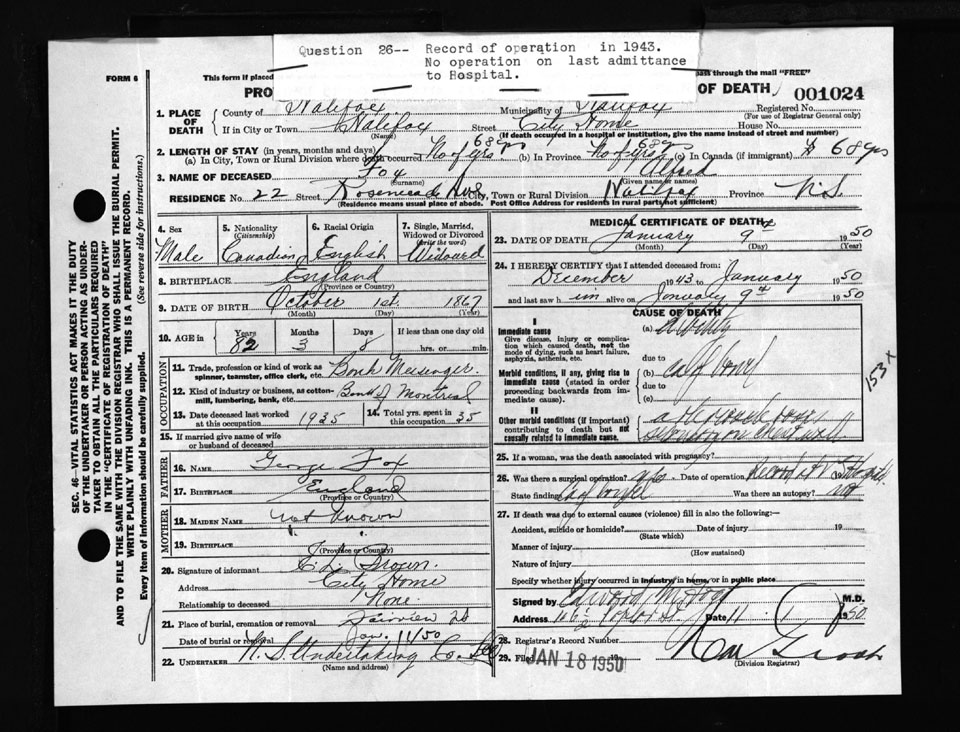 Question 26-- Record of operation in 1943.
No operation on last admittance
to Hospital.
FORM 6
This form if placed
pass through the mail "FREE"
PRO
OF DEATH
001024
1. PLACE OF DEATH
County of Halifax
Municipality of Halifax
Registered No.
(For use of Registrar General only)
If in City or Town Halifax Street City Home House No.
(Name)
(If death occurred in a hospital or institution, give the name instead of street and number)
2. LENGTH OF STAY (in years, months and days)
(a) In City, Town or Rural Division where death occurred No of yrs 68 yrs (b) In Province No of yrs 68 yrs (c) In Canada (if immigrant) 68 yrs
3. NAME OF DECEASED Fox Alfred
(Surname) (Given name or names)
RESIDENCE No. 22 Street Rosemeade Ave City, Town or Rural Division Halifax Province N.S.
(Residence means usual place of abode. Post Office Address for residents in rural parts not sufficient)
4. Sex
Male
5. Nationality
(Citizenship)
Canadian
6. Racial Origin
English
7. Single, Married, Widowed or Divorced
(write the word)
Widowed
8. BIRTHPLACE England
(Province or Country)
9. DATE OF BIRTH October 1st. 1867
(Month) (Day) (Year)
10. AGE in
Years 82
Months 3
Days 8
If less than one day old
hrs. or min.
OCCUPATION
11. Trade, profession or kind of work as spinner, teamster, office clerk, etc. Bank Messenger.
12. Kind of industry or business, as cotton-mill, lumbering, bank, etc. Bank of Montreal
13. Date deceased last worked at this occupation 1935
14. Total yrs. spent in this occupation 35
15. If married give name of wife or husband of deceased
FATHER
16. NAME George Fox
17. BIRTHPLACE England
(Province or Country)
MOTHER
18. MAIDEN NAME not known
19. BIRTHPLACE " "
(Province or Country)
20. Signature of informant Brown.
Address City Home
Relationship to deceased None.
21. Place of burial, cremation or removal Fairview
Date of burial or removal Jan. 11/50
22. UNDERTAKER N.S. Undertaking Co.
(Name and address)
MEDICAL CERTIFICATE OF DEATH
23. DATE OF DEATH January 9th 1950
(Month) (Day) (Year)
24. I HEREBY CERTIFY that I attended deceased from:
December 1943 to January 1950
and last saw him alive on January 9th 1950
CAUSE OF DEATH
I
Immediate cause
Give disease, injury or complication which caused death, not the mode of dying, such as heart failure, asphyxia, asthenia, etc.
(a)
due to
Morbid conditions, if any, giving rise to immediate cause (stated in order proceeding backwards from immediate cause).
(b) ca of bowel
due to
(c)
II
Other morbid conditions (if important) contributing to death but not causally related to immediate cause.
153 X
25. If a woman, was the death associated with pregnancy?
26. Was there a surgical operation? Date of operation Record at Hospital 19
State finding ca of bowel Was there an autopsy? no
27. If death was due to external causes (violence) fill in also the following:
Accident, suicide or homicide? Date of injury 19
(State which)
Manner of injury
(How sustained)
Nature of injury
Specify whether injury occurred in industry, in home, or in public place
Signed by M.D.
Address Date 11 1 1950
28. Registrar's Record Number
29. Filed JAN 18 1950 19
(Division Registrar)
SEC. 46—VITAL STATISTICS ACT MAKES IT THE DUTY
OF THE UNDERTAKER OR PERSON ACTING AS UNDER-
TAKER TO OBTAIN ALL THE PARTICULARS REQUIRED
IN THE "CERTIFICATE OF REGISTRATION OF DEATH"
AND TO FILE THE SAME WITH THE DIVISION REGISTRAR WHO SHALL ISSUE THE BURIAL PERMIT.
WRITE PLAINLY WITH UNFADING INK. THIS IS A PERMANENT RECORD.
Every item of information should be carefully supplied. (See reverse side for instructions.)